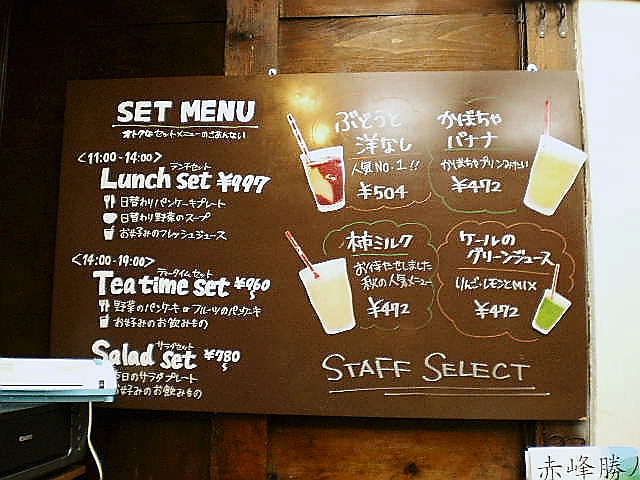 SET MENU
オトクなセットメニューのごあんない
<11:00-14:00>
ランチセット
Lunch set ¥997
日替わりパンケーキプレート
日替わり野菜のスープ
お好みのフレッシュジュース
<14:00-19:00>
ティータイムセット
Tea time set ¥960~
野菜のパンケーキ or フルーツのパンケーキ
お好みのお飲みもの
サラダセット
Salad set ¥780~
今日のサラダプレート
お好みのお飲みもの
ぶどうと
洋なし
人気No.1!!
¥504
かぼちゃ
バナナ
かぼちゃプリンみたい
¥472
柿ミルク
お待たせしました
秋の人気メニュー
¥472
ケールの
グリーンジュース
りんご・レモンとMIX
¥472
STAFF SELECT
Canon
赤峰勝